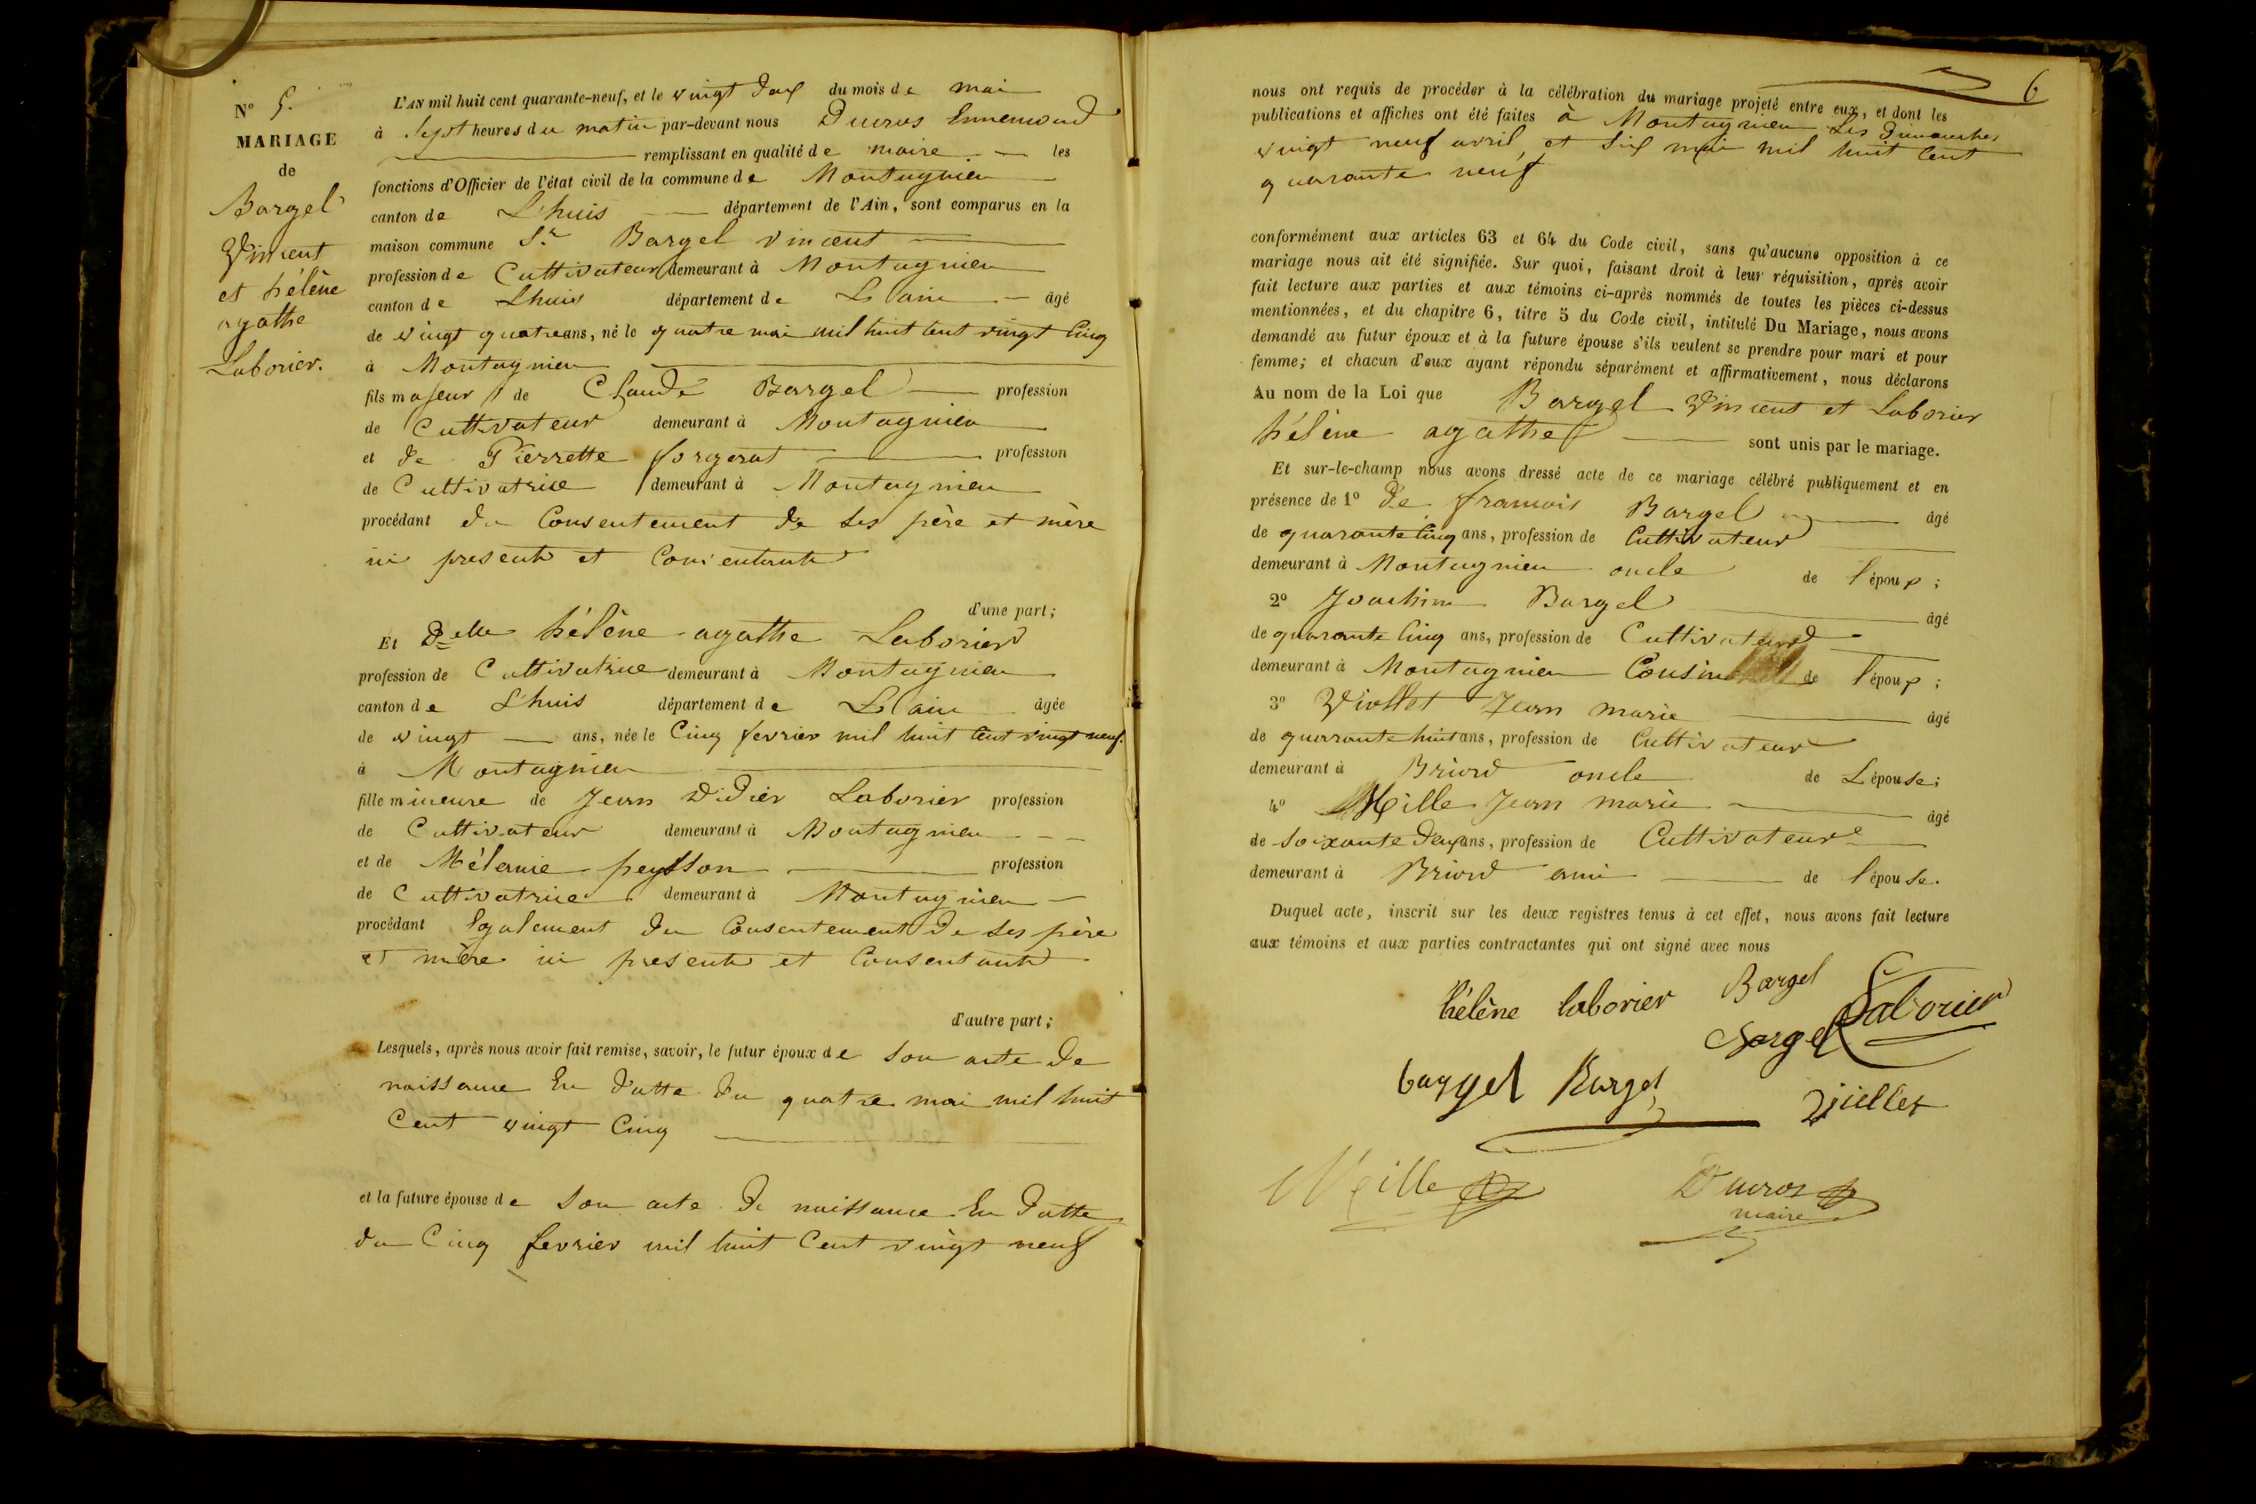 N° 5.
MARIAGE
de
Bargel
Vincent
et hélène
agathe
Laborier.
L'AN mil huit cent quarante-neuf, et le vingt deux du mois de mai
à sept heures du matin par-devant nous Ducros Ennemond
remplissant en qualité de maire les
fonctions d'Officier de l'état civil de la commune de Montagnieu
canton de Lhuis département de l'Ain, sont comparus en la
maison commune Sr Bargel vincent
profession de Cultivateur demeurant à Montagnieu
canton de Lhuis département de L'ain âgé
de vingt quatre ans, né le quatre mai mil huit cent vingt cinq
à Montagnieu
fils majeur de Claude Bargel profession
de Cultivateur demeurant à Montagnieu
et de Pierrette forgerat profession
de Cultivatrice demeurant à Montagnieu
procédant du Consentement de ses père et mère
ici presents et Consentants
d'une part;
Et Delle hélène agathe Laborier
profession de Cultivatrice demeurant à Montagnieu
canton de Lhuis département de L'ain âgée
de vingt ans, née le Cinq fevrier mil huit Cent vingt neuf.
à Montagnieu
fille mineure de Jean Didier Laborier profession
de Cultivateur demeurant à Montagnieu
et de Mélanie peysson profession
de Cultivatrice demeurant à Montagnieu
procédant Egalement du Consentement de ses père
et mère ici presents et Consentants
d'autre part;
Lesquels, après nous avoir fait remise, savoir, le futur époux de son acte de
naissance En datte du quatre mai mil huit
Cent vingt Cinq
et la future épouse de son acte de naissance En datte
du Cinq fevrier mil huit Cent vingt neuf
6
nous ont requis de procéder à la célébration du mariage projeté entre eux, et dont les
publications et affiches ont été faites à Montagnieu Les Dimanches
vingt neuf avril, et six mai mil huit Cent
quarante neuf
conformément aux articles 63 et 64 du Code civil, sans qu'aucune opposition à ce
mariage nous ait été signifiée. Sur quoi, faisant droit à leur réquisition, après avoir
fait lecture aux parties et aux témoins ci-après nommés de toutes les pièces ci-dessus
mentionnées, et du chapitre 6, titre 5 du Code civil, intitulé Du Mariage, nous avons
demandé au futur époux et à la future épouse s'ils veulent se prendre pour mari et pour
femme; et chacun d'eux ayant répondu séparément et affirmativement, nous déclarons
Au nom de la Loi que Bargel Vincent et Laborier
hélène agathe sont unis par le mariage.
Et sur-le-champ nous avons dressé acte de ce mariage célébré publiquement et en
présence de 1° de francois Bargel âgé
de quarante cinq ans, profession de Cultivateur
demeurant à Montagnieu oncle de l'époux;
2° Joachim Bargel âgé
de quarante Cinq ans, profession de Cultivateur
demeurant à Montagnieu Cousin de l'époux;
3° Viollet Jean marie âgé
de quarante huit ans, profession de Cultivateur
demeurant à Briord oncle de L'épouse;
4° Mille Jean marie âgé
de soixante deux ans, profession de Cultivateur
demeurant à Briord ami de l'épouse.
Duquel acte, inscrit sur les deux registres tenus à cet effet, nous avons fait lecture
aux témoins et aux parties contractantes qui ont signé avec nous
hélène laborier Bargel Laborier
Bargel
bargel Bargel
Mille Ducros
maire